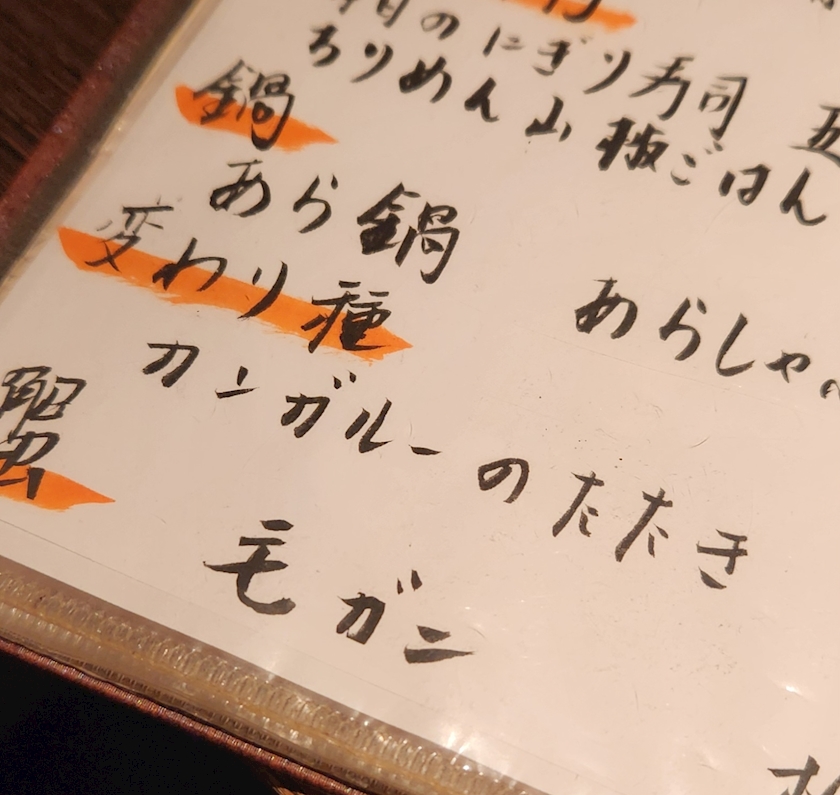 にぎり寿司
ちりめん山椒ごはん
鍋
あら鍋
あらしゃ
変わり種
カンガルーのたたき
蟹
毛ガニ